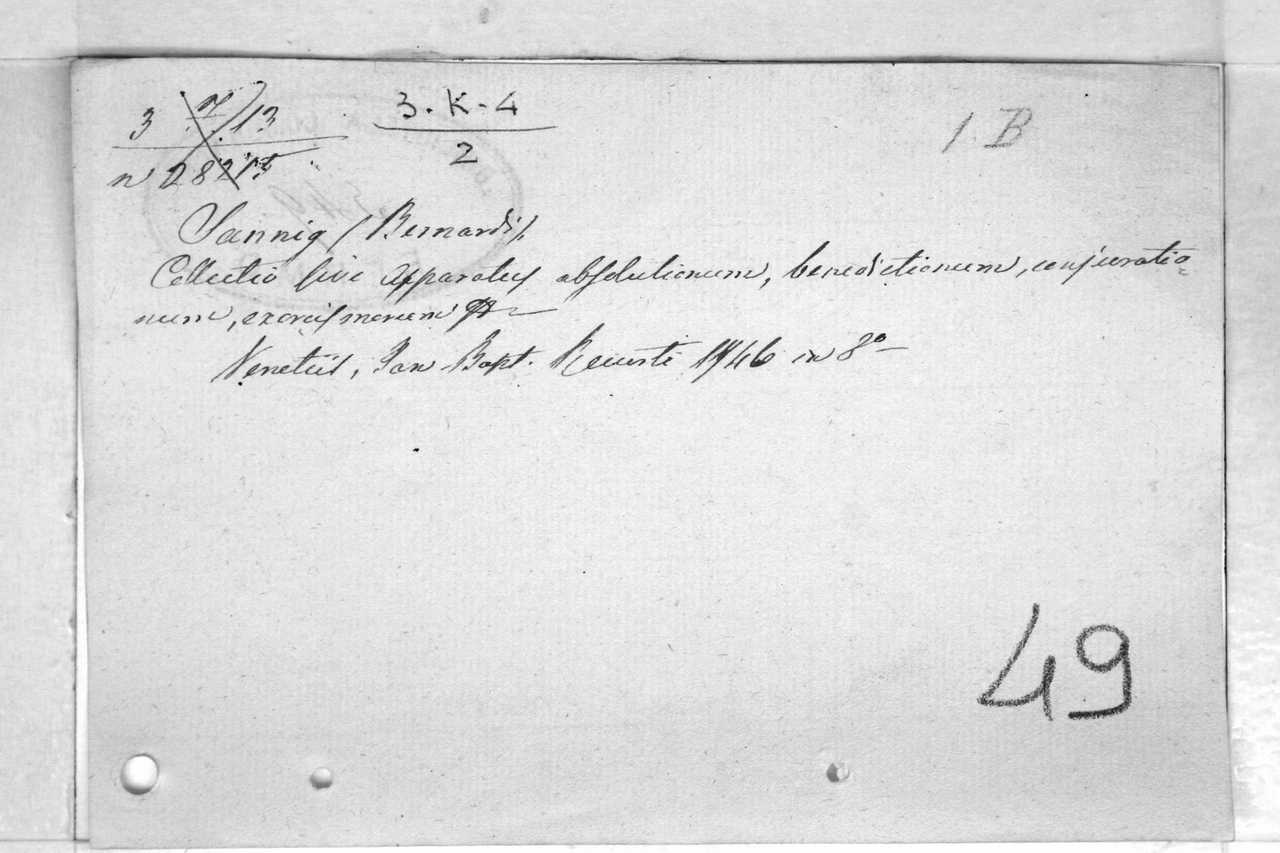 3 7/13
3.K-4
2
1 B
n 28215
Sannig (Bernardi).
Collectio sive apparatus absolutionum, benedictionum, conjuratio=
num, exorcismorum
Venetiis, Jan Bapt. Recurti 1746 in 8º
49